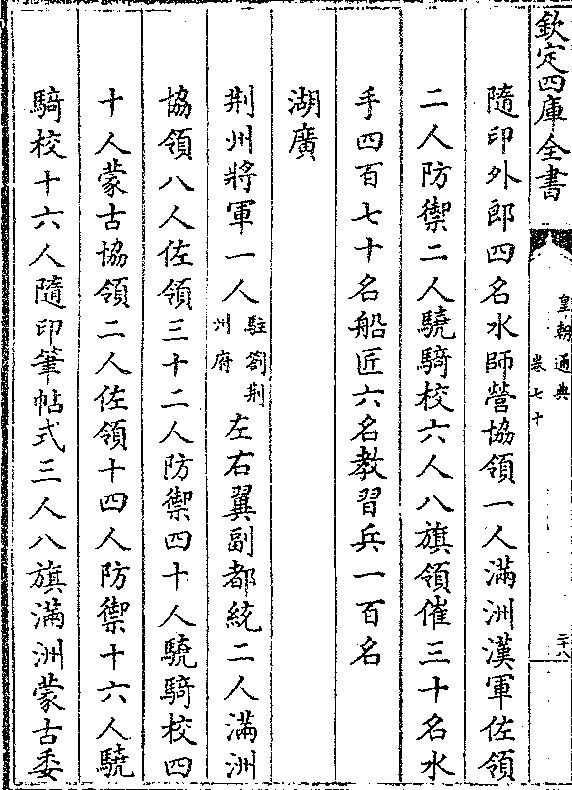 欽定四庫全書
皇朝通典
卷七十
二十八
隨印外郎四名水師營協領一人滿洲漢軍佐領
二人防禦二人驍騎校六人八旗領催三十名水
手四百七十名船匠六名教習兵一百名
湖廣
荆州將軍一人駐劄荆州府左右翼副都統二人滿洲
協領八人佐領三十二人防禦四十人驍騎校四
十人蒙古協領二人佐領十四人防禦十六人驍
騎校十六人隨印筆帖式三人八旗滿洲蒙古委